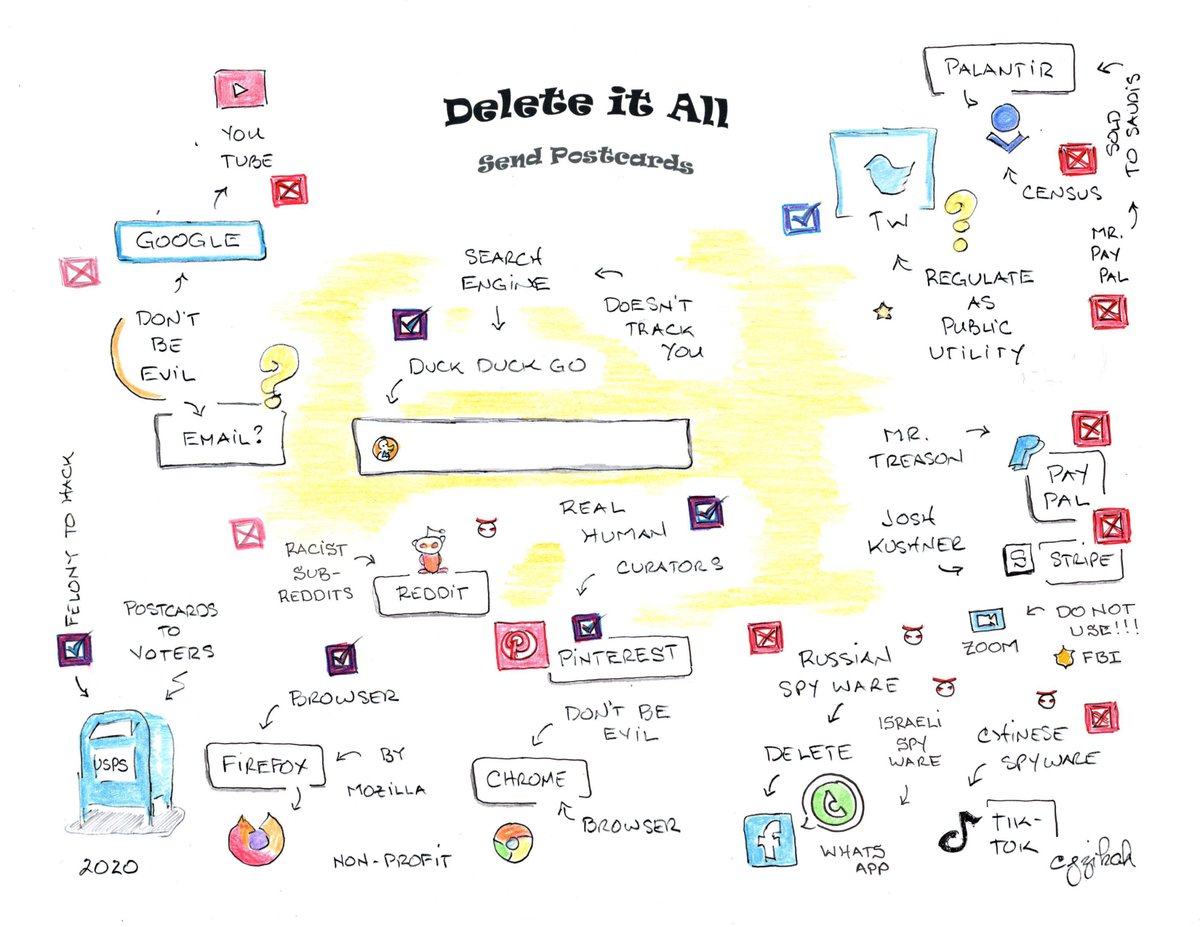 Delete it All
Send Postcards
YOU
TUBE
GOOGLE
DON'T
BE
EVIL
EMAIL?
SEARCH
ENGINE
DOESN'T
TRACK
YOU
DUCK DUCK GO
PALANTIR
SOLD
TO SAUDIS
CENSUS
MR.
PAY
PAL
TW
REGULATE
AS
PUBLIC
UTILITY
MR.
TREASON
PAY
PAL
JOSH
KUSHNER
S
STRIPE
ZOOM
DO NOT
USE!!!
FBI
FELONY TO HACK
POSTCARDS
TO
VOTERS
USPS
2020
RACIST
SUB-
REDDITS
REDDIT
REAL
HUMAN
CURATORS
PINTEREST
BROWSER
FIREFOX
BY
MOZILLA
NON-PROFIT
DON'T BE
EVIL
CHROME
BROWSER
RUSSIAN
SPY WARE
DELETE
f
WHATS
APP
ISRAELI
SPY
WARE
CHINESE
SPYWARE
TIK-
TOK